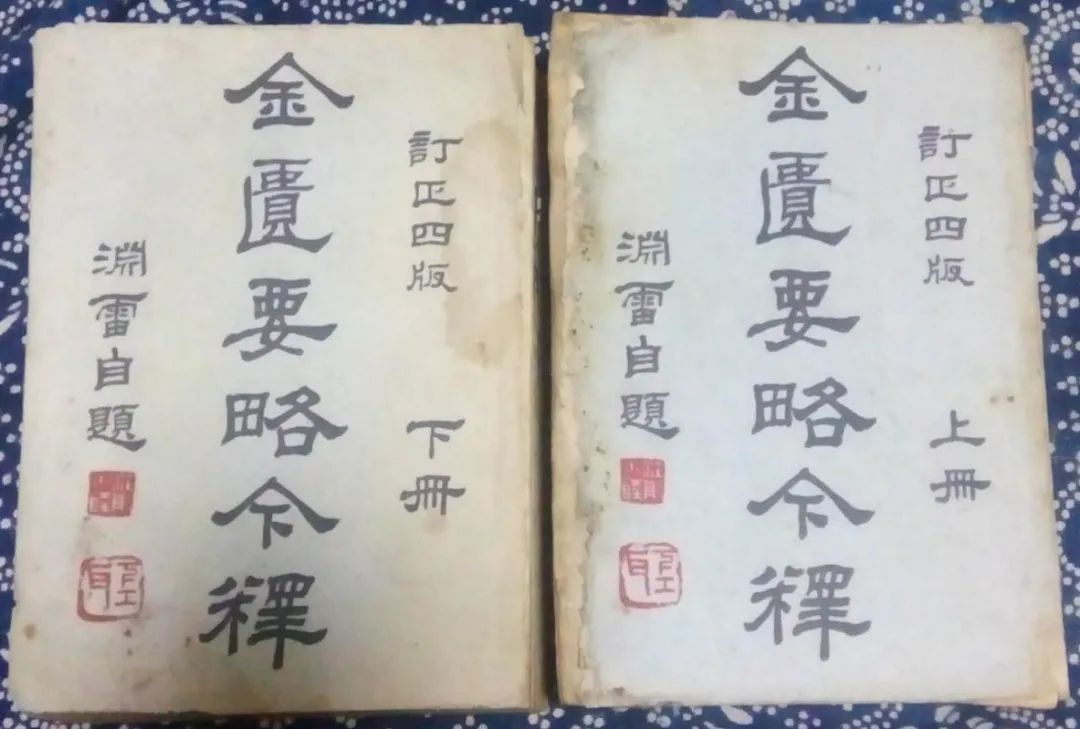 訂正四版
上冊
金匱要略今釋
淵雷自題
訂正四版
下冊
金匱要略今釋
淵雷自題